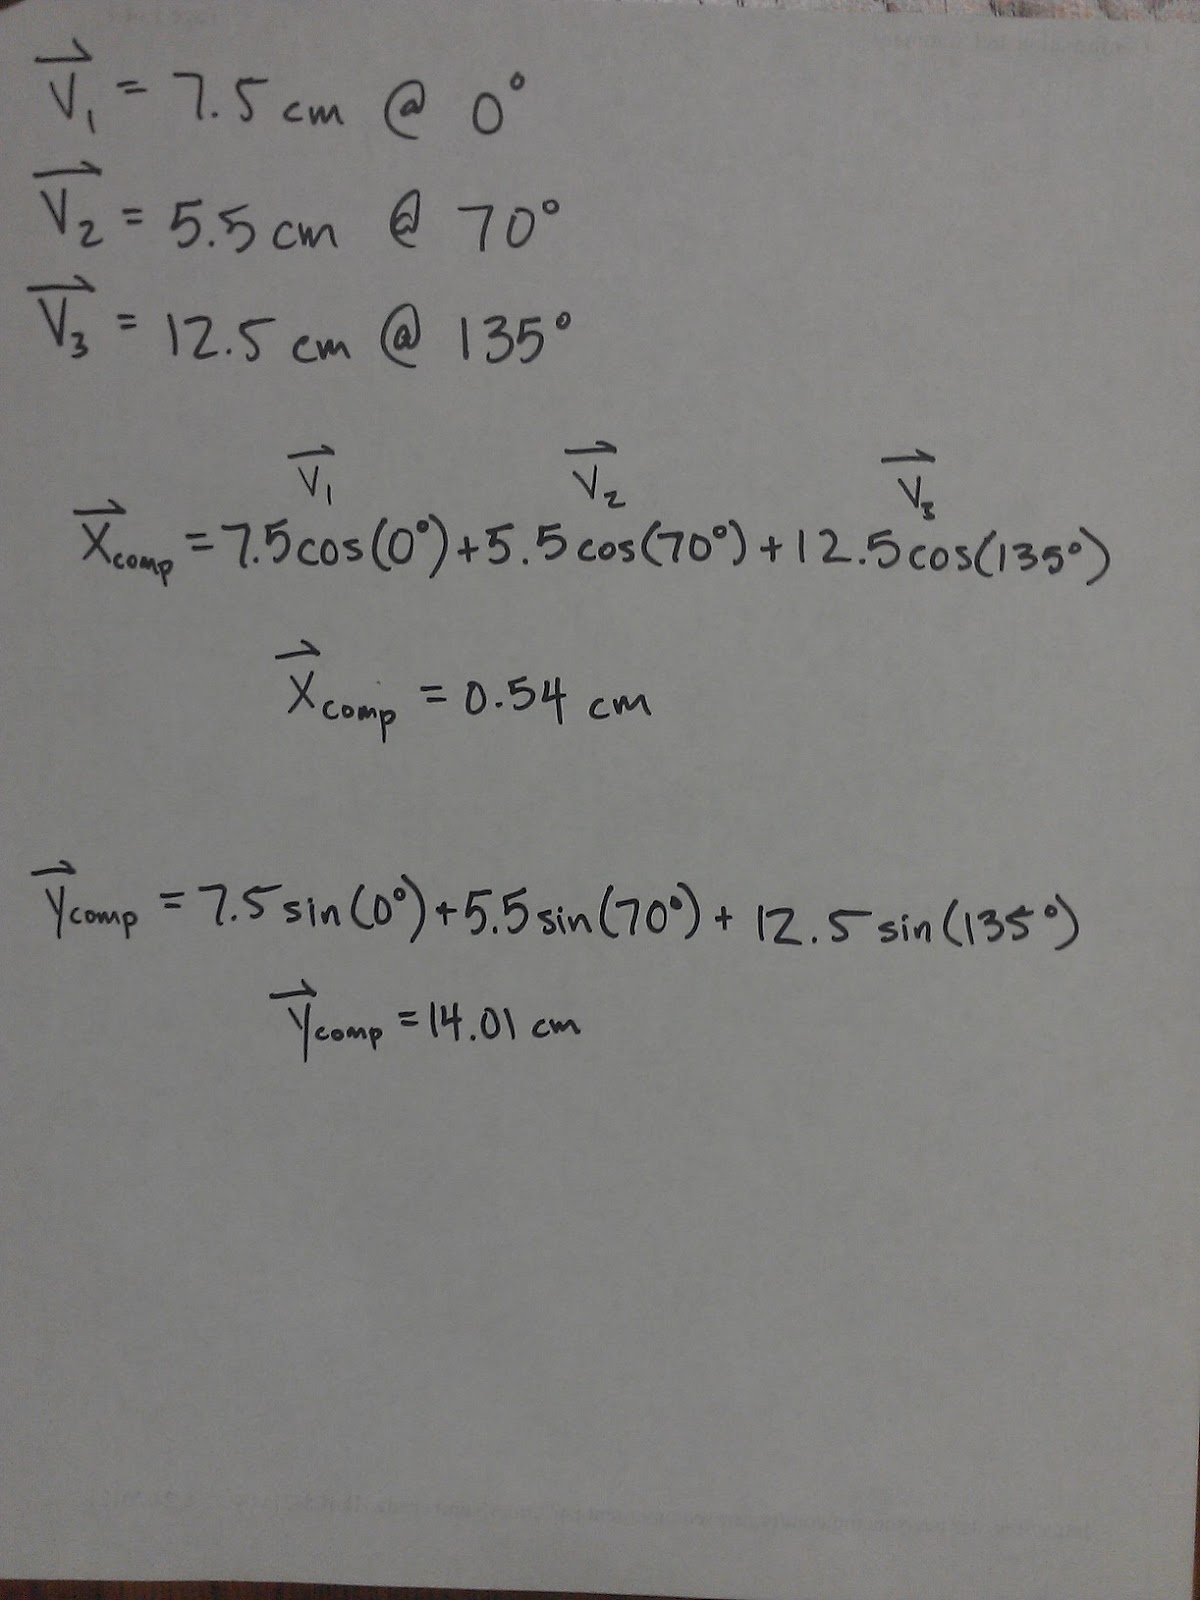 V₁ = 7.5 cm @ 0°
V₂ = 5.5 cm @ 70°
V₃ = 12.5 cm @ 135°
V₁ V₂ V₃
Xcomp = 7.5cos(0°)+5.5cos(70°)+12.5cos(135°)
Xcomp = 0.54 cm
Ycomp = 7.5sin(0°)+5.5sin(70°)+12.5sin(135°)
Ycomp = 14.01 cm